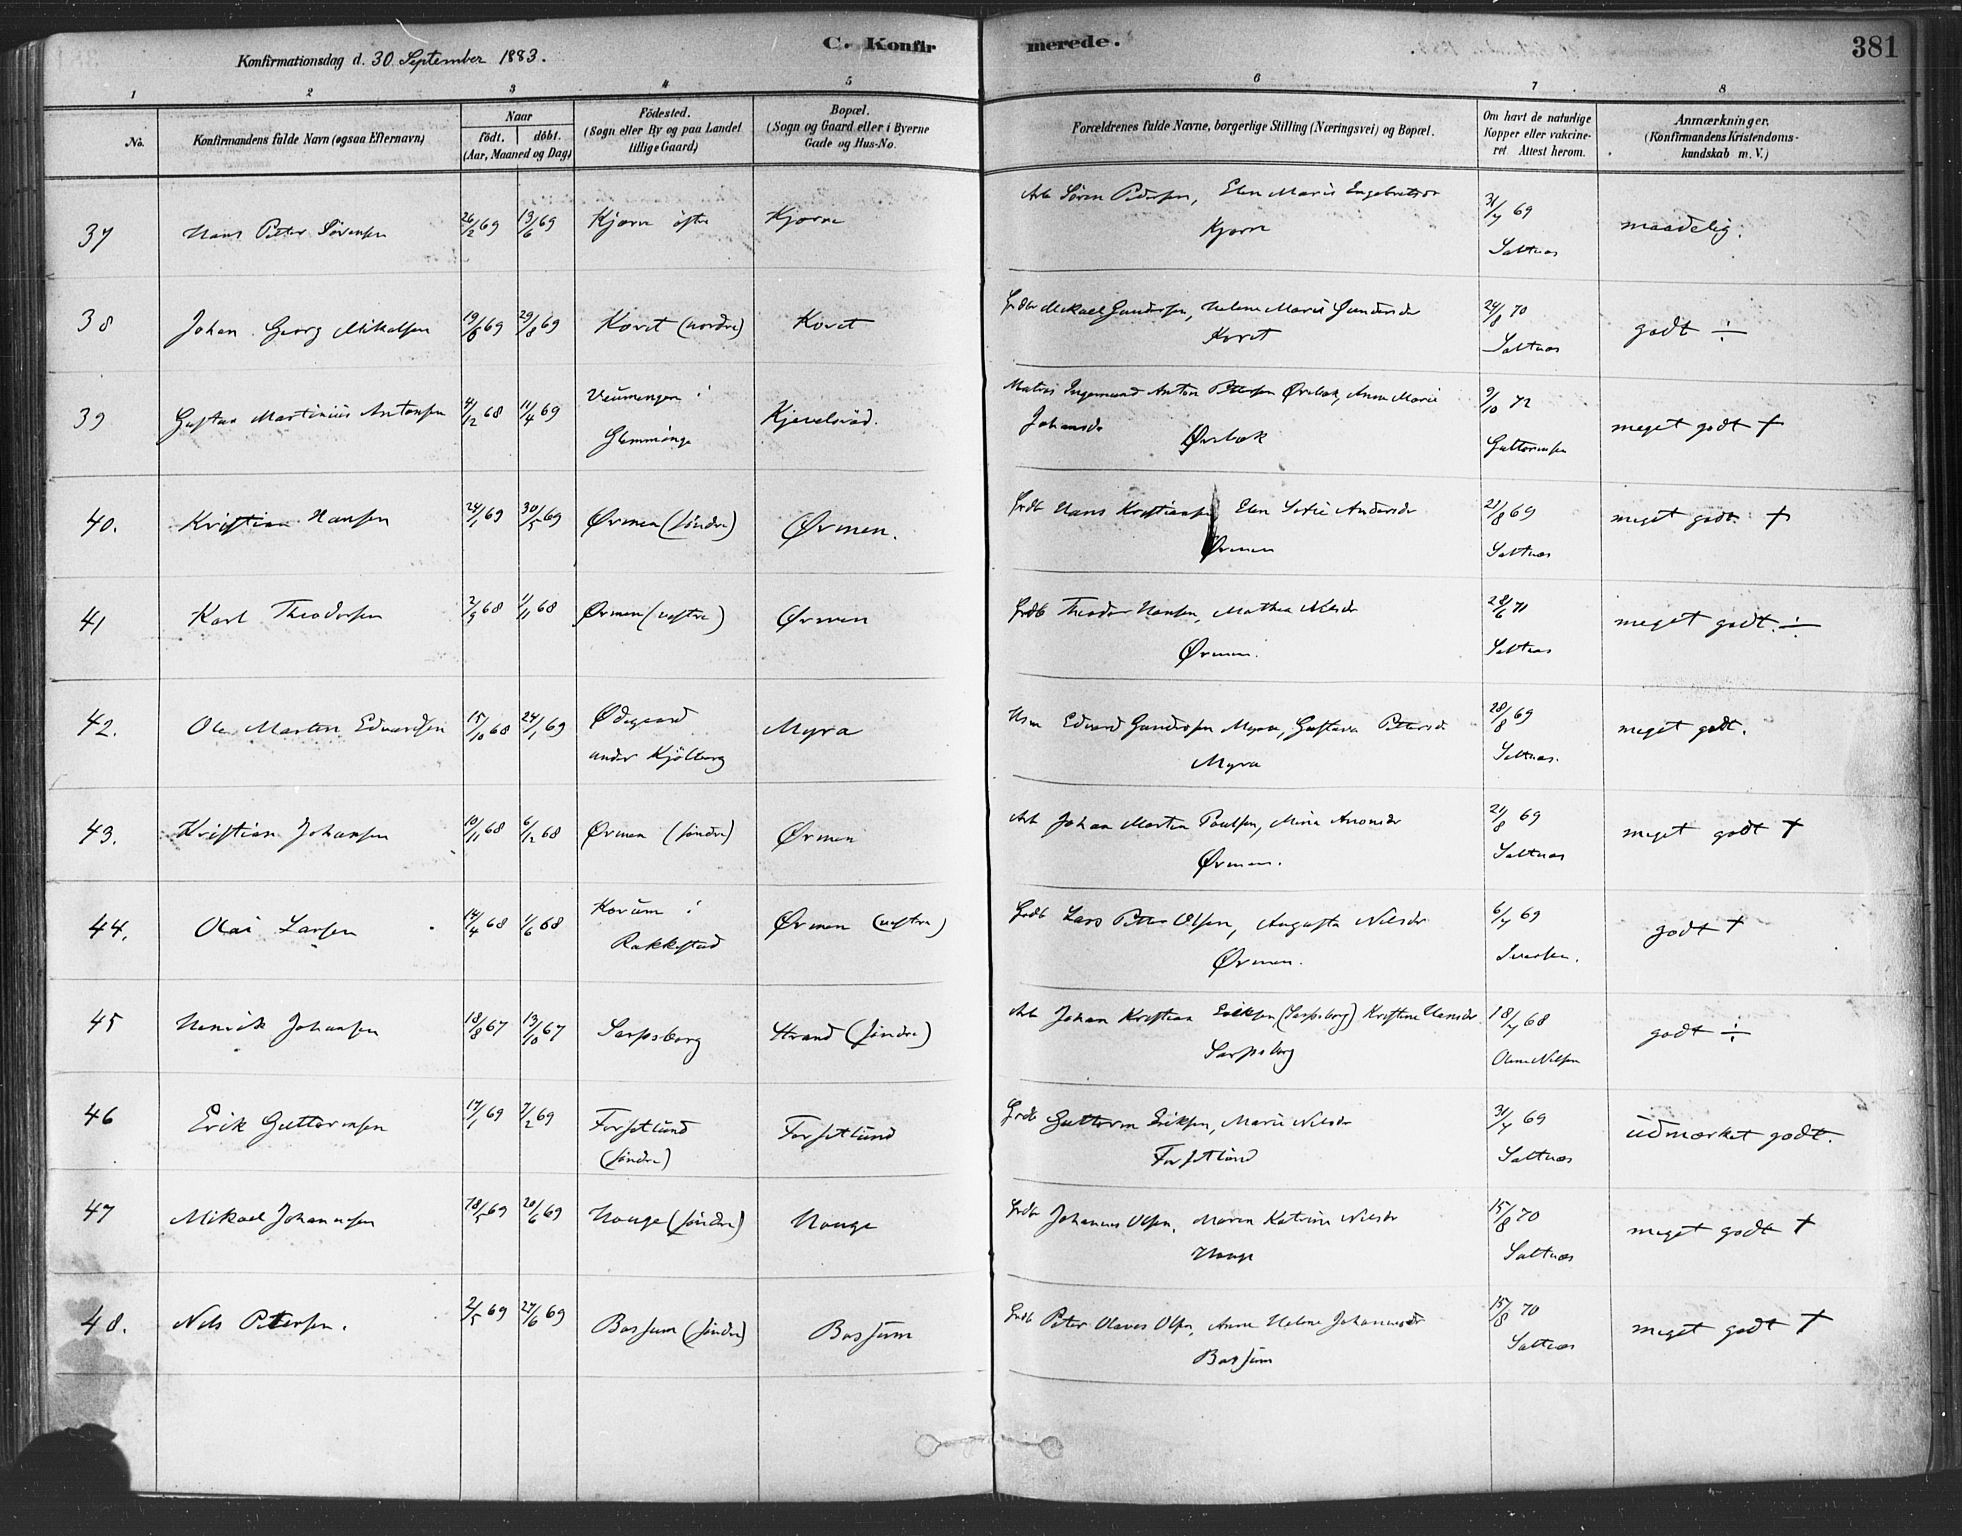 Konfirmationsdag d. 30 September 1883.
C. Konfirmerede.
381
1 2 3 4 5 6 7 8
No. Konfirmandens fulde Navn (ogsaa Efternavn) Naar födt. döbt. (Aar, Maaned og Dag) Födested. (Sogn eller By og paa Landet tillige Gaard) Bopæl. (Sogn og Gaard eller i Byerne Gade og Hus-No. Forældrenes fulde Navne, borgerlige Stilling (Næringsvei) og Bopæl. Om havt de naturlige Kopper eller vakcineret Attest herom. Anmærkninger. (Konfirmandens Kristendomskundskab m. V.)
37 Hans Petter Sørensen 26/2 69 13/6 69 Kjærne östre Kjærne Arb Sören Pedersen, Elen Marie Engebretsdr
Kjærne 31/7 69 Saltnæs maadelig.
38 Johan Georg Mikalsen 19/6 69 29/8 69 Koret (nordre) Koret Grdbr Mikael Gundersen, Helene Marie Gundersdr
Koret 24/8 70 Saltnæs godt ÷
39 Gustav Martinius Antonsen 4/12 68 11/4 69 Veumengen i Glemminge Kjevelsröd. Matros Ingemund Anton Pettersen Ørebæk, Anne Marie
Johansdr Ørebæk 9/10 72 Guttormsen meget godt +
40. Kristian Hansen 24/1 69 30/5 69 Ørmen (söndre) Ørmen. Grdb Hans Kristiansen Elen Sofie Andersdr
Ørmen 21/8 69 Saltnæs meget godt +
41 Karl Theodorsen 2/9 68 1/11 68 Ørmen (vestre) Ørmen Grdb Theodor Hansen, Mathea Nilsdr
Ørmen. 28/6 71 Saltnæs meget godt. ÷
42. Ole Martin Edvardsen 15/10 68 24/1 69 Ødegaard under Kjölberg Myra Hsm Edvard Gundersen Myra, Gustava Petersdr
Myra 28/8 69 Saltnæs. meget godt.
43. Kristian Johansen 10/11 68 6/12 68 Ørmen (söndre) Ørmen Arb Johan Martin Paulsen, Mina Aronsdr
Ørmen. 21/8 69 Saltnæs meget godt +
44. Olai Larsen 14/4 68 1/6 68 Korum i Rakkestad Ørmen (vestre) Grdb Lars Petter Olsen, Augusta Nilsdr
Ørmen. 6/7 69 godt +
45 Henrik Johansen 18/8 67 13/10 67 Sarpsborg Strand (söndre) Arb Johan Kristian Eriksen (Sarpsborg) Kristine Hansdr
Sarpsborg 18/7 68 Olava Nilsen godt ÷
46 Erik Guttormsen 17/1 69 7/2 69 Forsetlund (söndre) Forsetlund Grdb Guttorm Eriksen, Marie Nilsdr
Forsetlund 31/7 69 Saltnæs udmærket godt.
47 Mikael Johannesen 18/5 69 20/6 69 Hauge (söndre) Hauge Grdb Johannes Olsen, Maren Katrine Nilsdr
Hauge 15/8 70 Saltnæs meget godt +
48. Nils Petersen. 2/5 69 27/6 69 Borsum (söndre) Borsum Grdb Peter Olaves Olsen, Anne Helene Johannesdr
Borsum 15/8 70 Saltnæs meget godt +